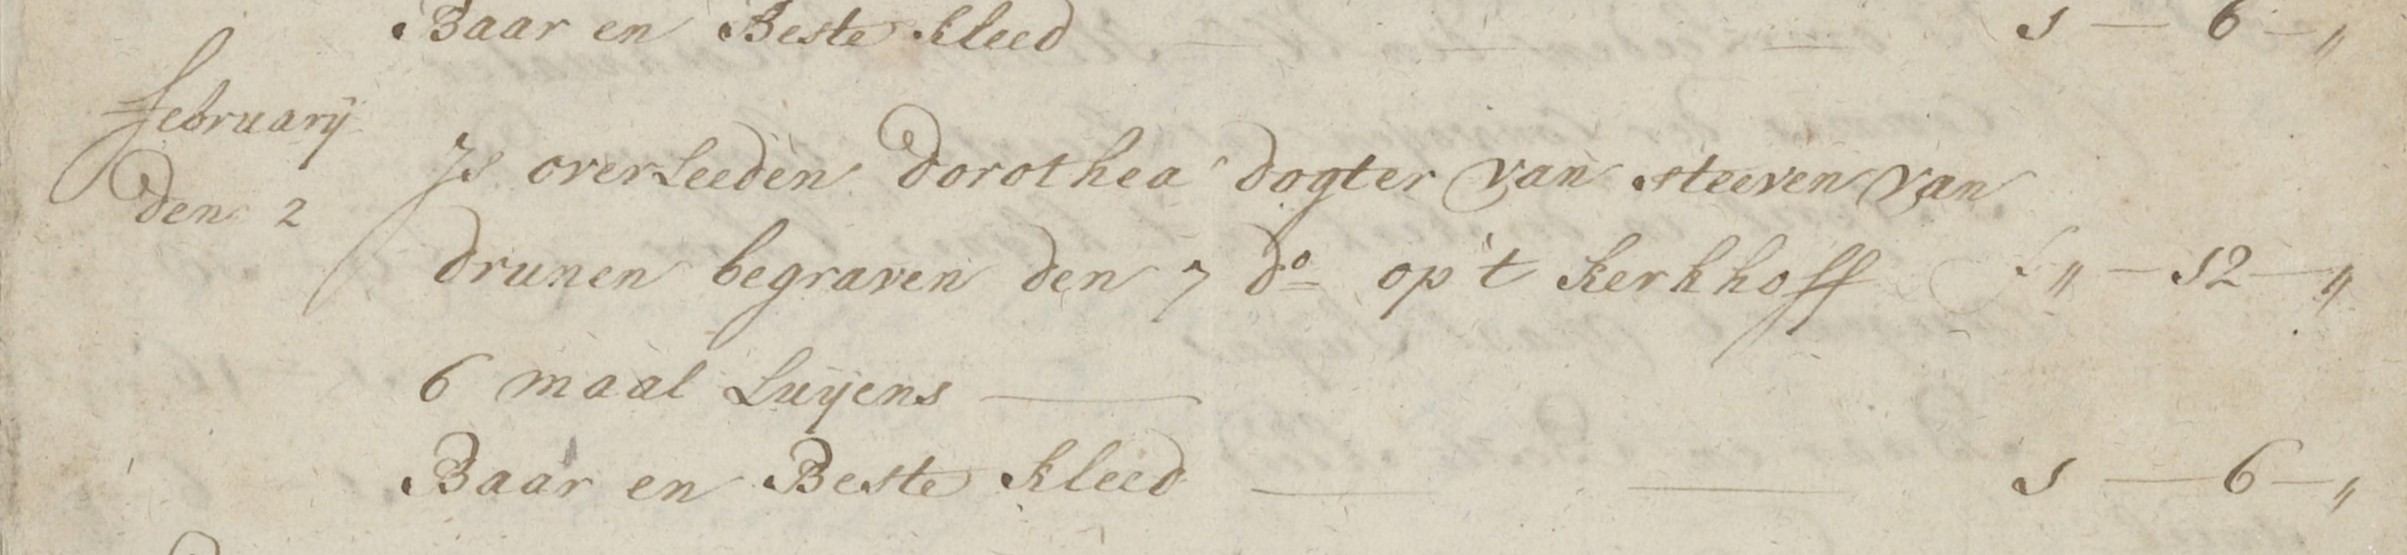 Baar en Beste kleed — — — 1 — 6 — „
february
den 2 Is overleeden dorothea dogter van steeven van
drunen begraven den 7 do op 't kerkhoff f „ — 12 — „
6 maal Luyens —
Baar en Beste kleed — — 1 — 6 — „